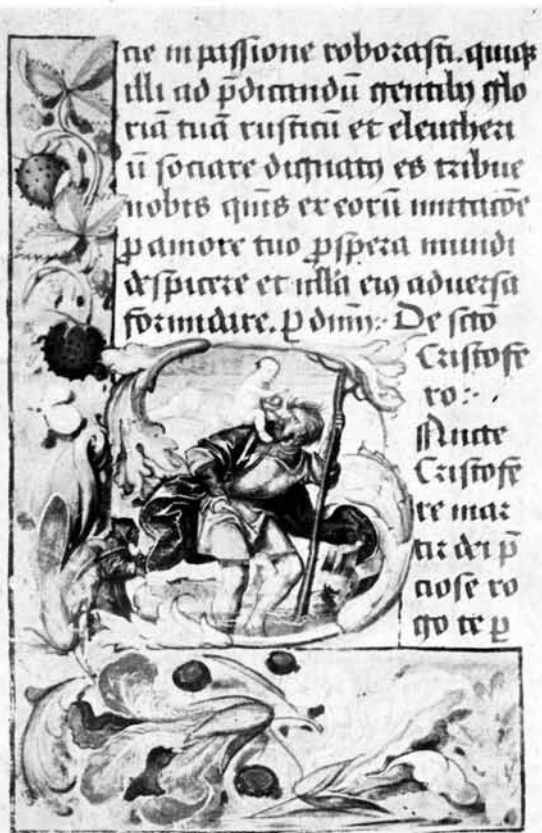 cie in passione roborasti. quiqʒ
illi ad p̄dicandū gentibʒ glo
riā tuā rusticū et eleutheri
ū sociare dignatʒ es tribue
nobis qm̄s ex eorū imitacōe
ꝑ amore tuo ꝓspera mundi
despicere et nulla eiꝰ aduersa
formidare. ꝑ dnm̄: De scto
Cristofe
ro:
Sancte
Cristofe
re mar
tir dei p̄
ciose ro
go te ꝑ